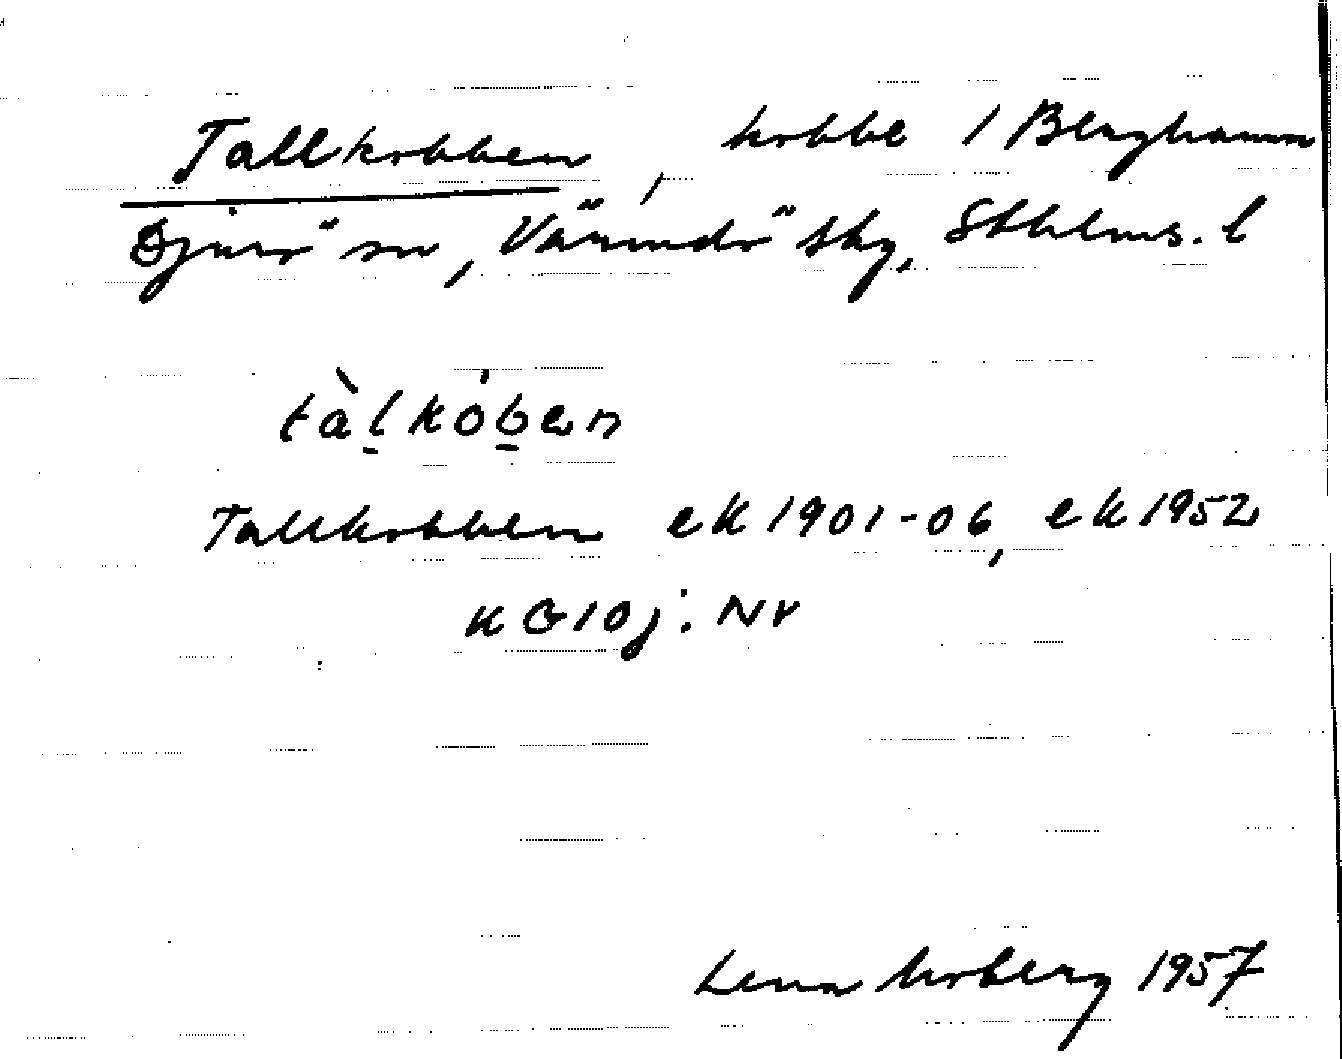 Tallkobben, kobbe / Berghamn
Djurö sn, Värmdö skg, Sthlms. l
tàl̲kób̲en
Tallkobben ek 1901-06, ek 1952
K G 10 j: NV
Lena Moberg 1957